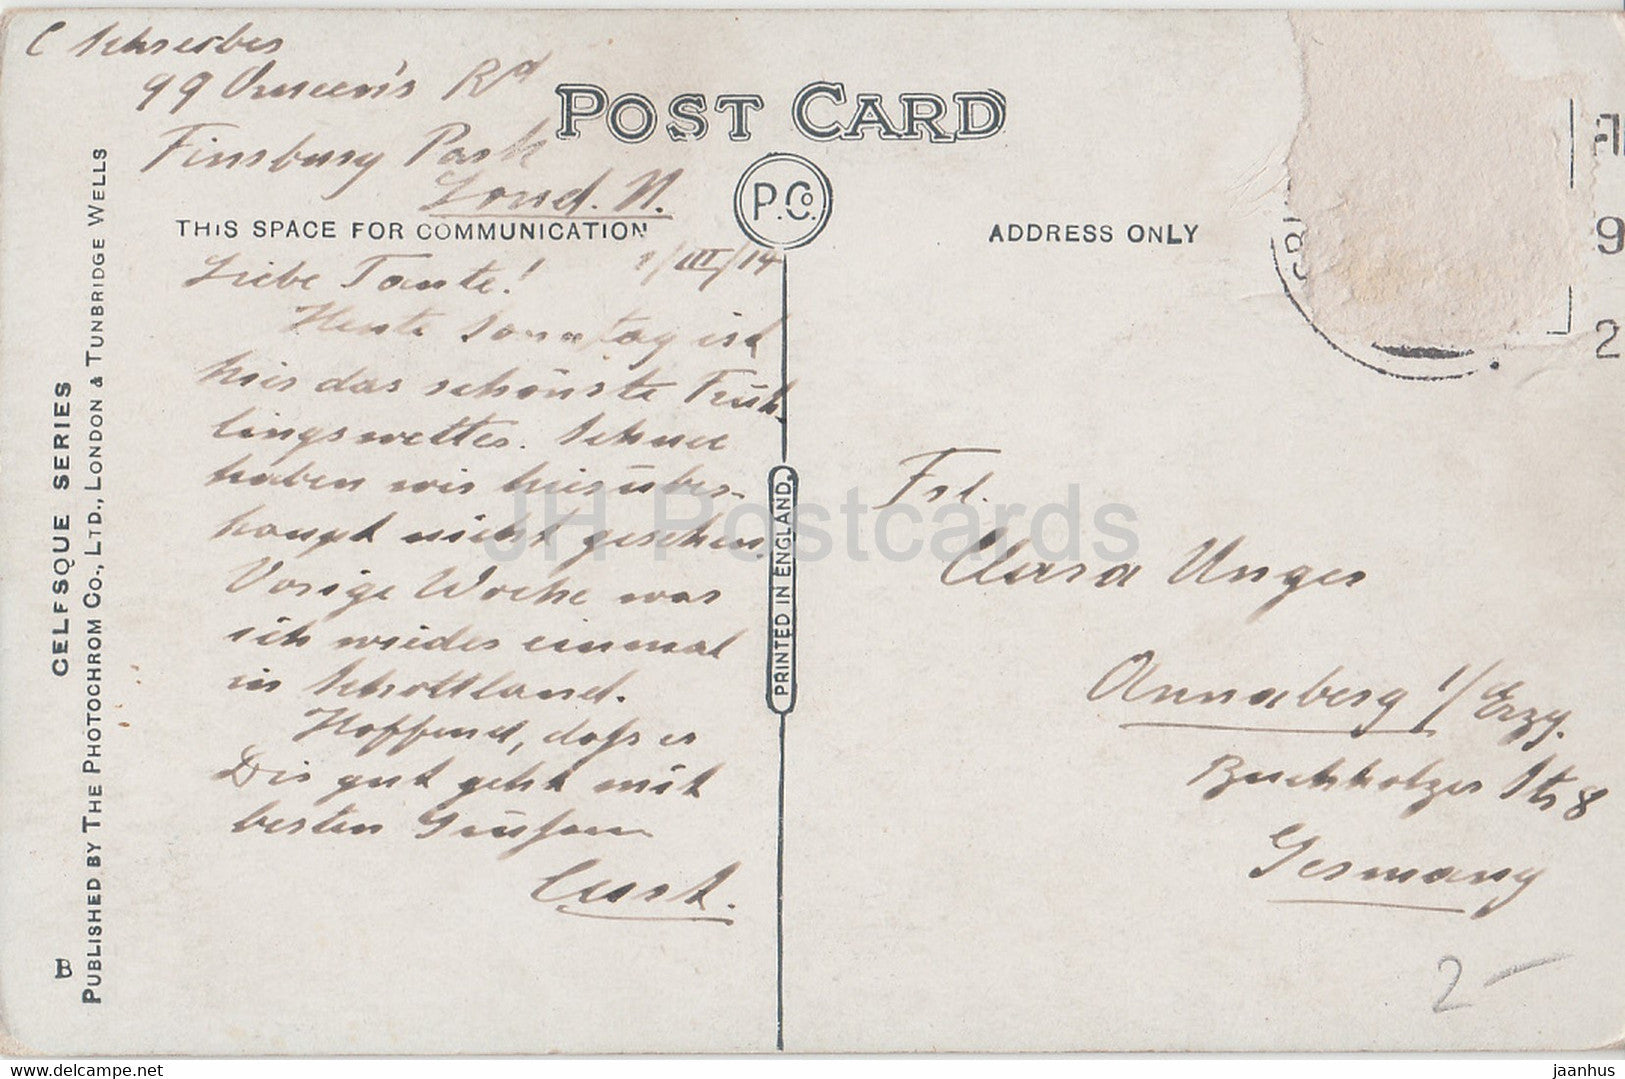 C Schreiber
99 Queen's Rd
Finsbury Park
Lond. N.
POST CARD
P.Co.
THIS SPACE FOR COMMUNICATION
ADDRESS ONLY
1/III/14
Liebe Tante!
Heute Sonntag ist
hier das schönste Früh-
lingswetter. Schnee
haben wir hier über-
haupt nicht gesehen.
Vorige Woche war
ich wieder einmal
in Schottland.
Hoffend, daß es
Dir gut geht mit
besten Grüßen
Curt.
Frl.
Clara Unger
Annaberg i/Erzg.
Buchholzer Str 8
Germany
2-
PRINTED IN ENGLAND.
CELFSQUE SERIES
B PUBLISHED BY THE PHOTOCHROM CO., LTD., LONDON & TUNBRIDGE WELLS
JH Postcards
delcampe.net
jaanhus